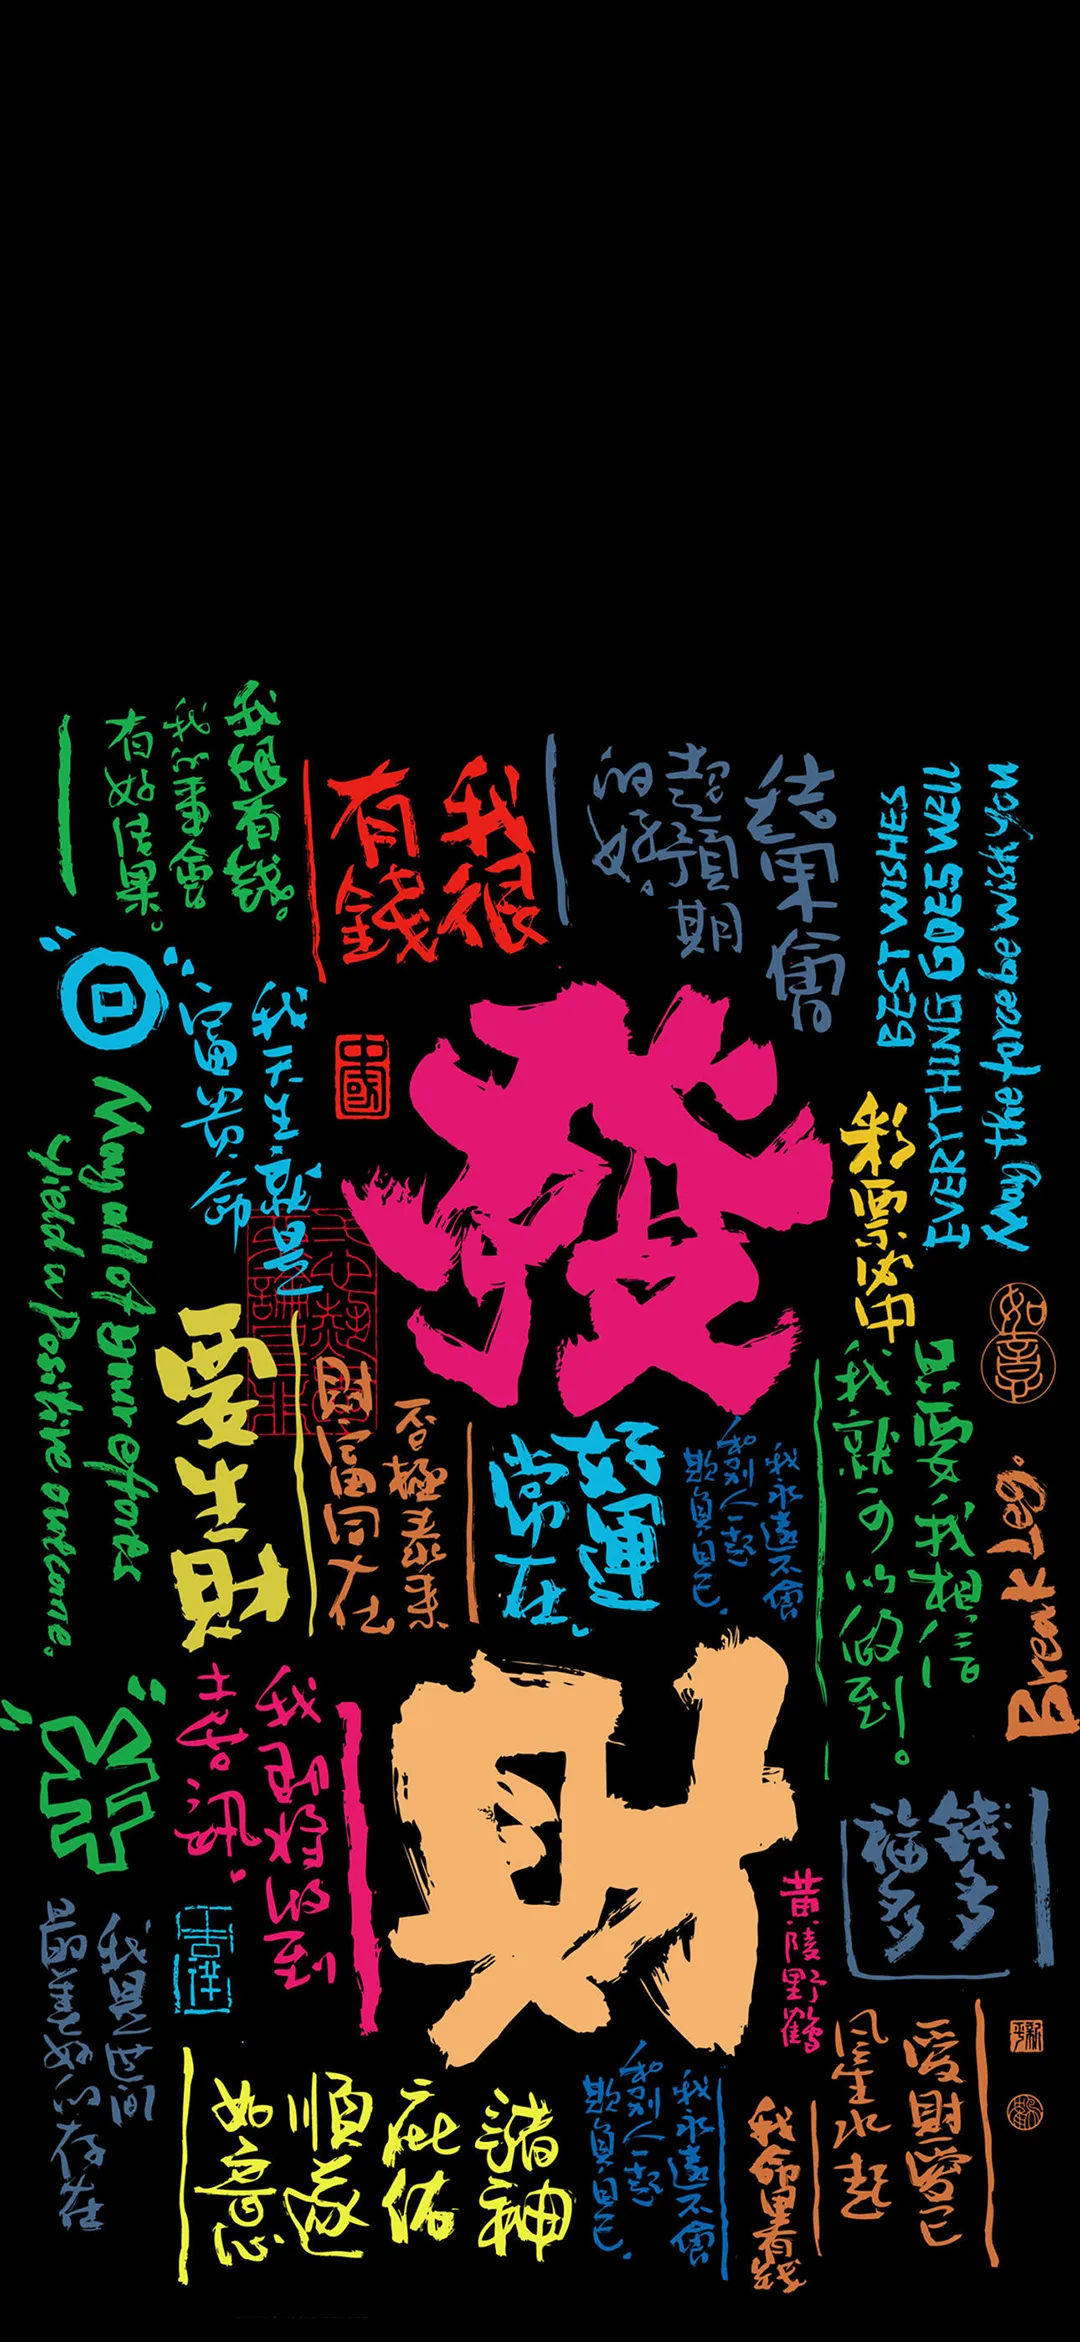 我很有錢。
我從來會
有好結果。
我很
有錢
結果會
超預期
的好。
BEST WISHES
EVERYTHING GOES WELL
May the force be with you
我天生就是
富貴命
中國
發
彩票必中
如意
May all of your efforts
yield a positive outcome.
要生財
否極泰來
財富同在
好運
常在
我永遠不會
和別人一起
欺負自己.
只要我相信
我就可以做到!。
Break Leg.
我即將收到
喜訊
財
錢多多
福多多
黄陵野鶴
我是世間
最美好的存在
吉祥
諸神
庇佑
順遂
如意
我永遠不會
和別人一起
欺負自己.
我命里有錢
愛財愛己
風生水起